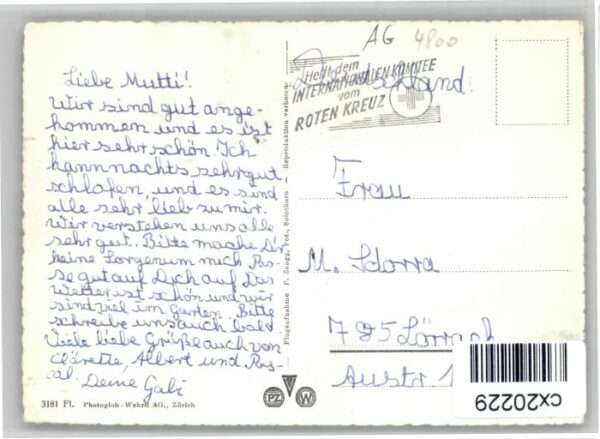 AG 4800
Liebe Mutti!
Wir sind gut ange-
kommen und es ist
hier sehr schön. Ich
kann nachts sehr gut
schlafen, und es sind
alle sehr lieb zu mir.
Wir verstehen uns alle
sehr gut. Bitte mache Dir
keine Sorgen um mich. Pas-
se gut auf Dich auf. Das
Wetter ist schön und wir
sind viel im Garten. Bitte
schreibe uns auch bald
Viele liebe Grüße auch von
Clärette, Albert und Pas-
al. Deine Gabi
3181 Fl. Photoglob-Wehrli AG., Zürich
Flugaufnahme F. Zaugg, Fot., Solothurn · Reproduktion verboten
Helft dem
INTERNATIONALEN KOMITEE
vom
ROTEN KREUZ
Frau
M. Sdorra
785 Lörrach
Austr. 1
PZ
W
cx20229